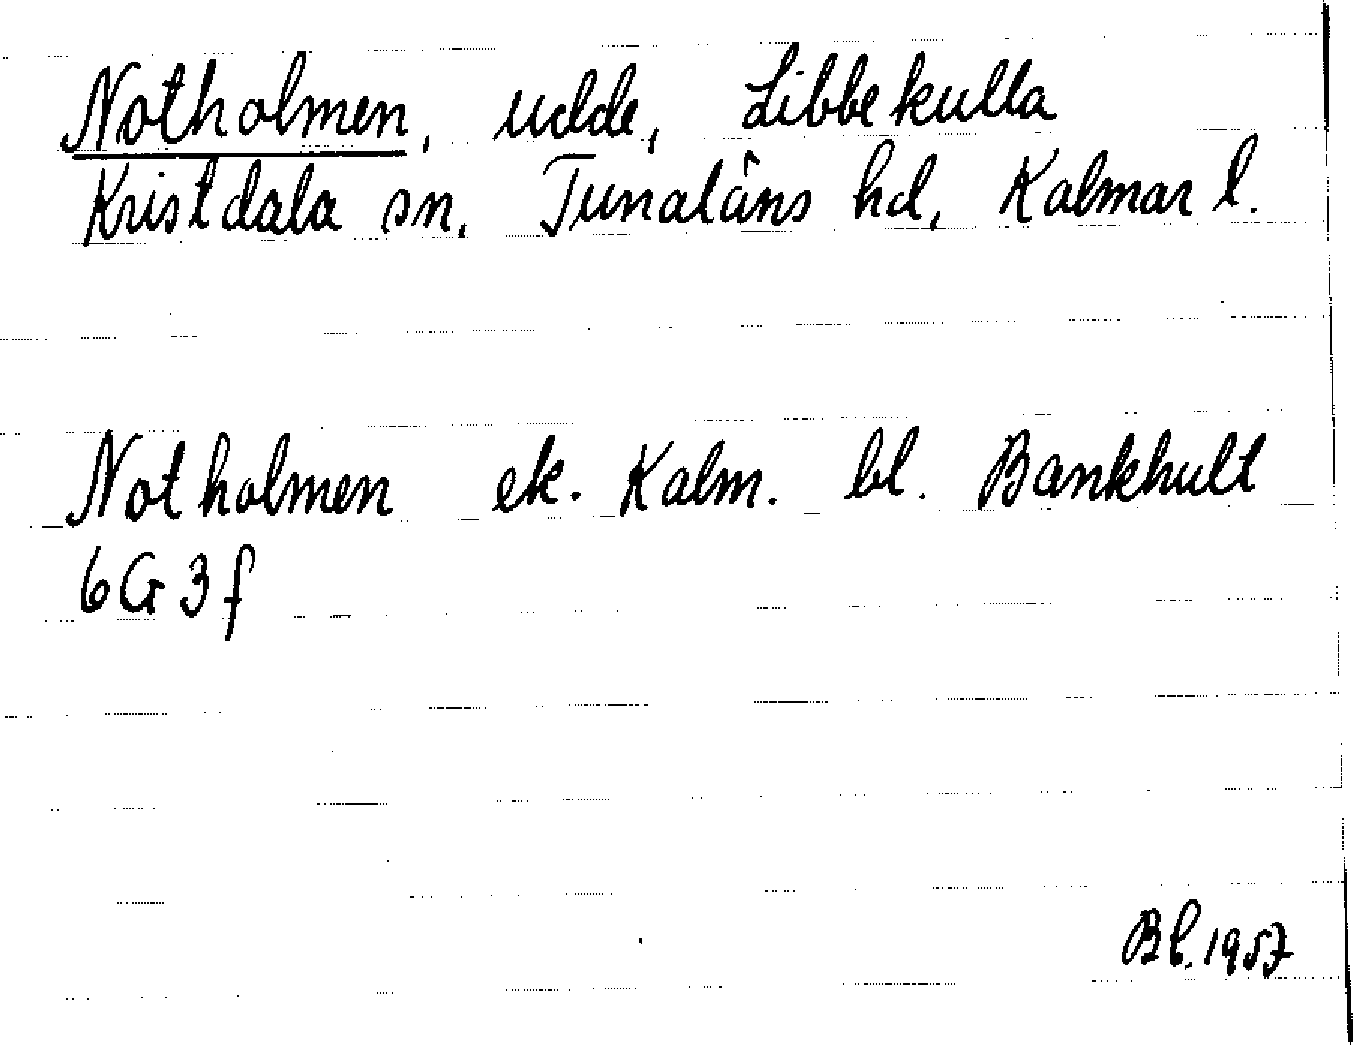 Notholmen, udde, Libbekulla
Kristdala sn, Tunaläns hd, Kalmar l.
Notholmen ek. Kalm. bl. Bankhult
6G3f
Bl. 1957